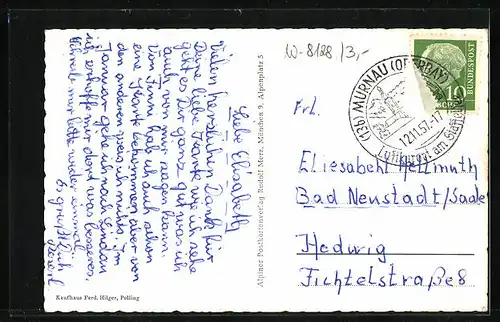 W-8128 /3,-
(13b) MURNAU (OBERBAY)
12.11.57.-17
Luftkurort am Staffelsee
DEUTSCHE BUNDESPOST
10
Liebe Elisabeth
Vielen herzlichen Dank für
Deine liebe Karte wie ich sehe
geht es Dir ganz gut was ich
auch von mir sagen kann.
Von Finni hab ich auch schon
eine Karte bekommen aber von
den anderen weis ich nichts. Im
Januar gehe ich nach Lindau
ich erhoffe mir dort was besseres.
Schreib mir bitte wieder einmal.
Es grüßt Dich
Alpiner Postkartenverlag Rudolf Merz, München 9, Alpenplatz 5
Kaufhaus Ferd. Hilger, Polling
Frl.
Eliesabeht Hellmuth
Bad Neustadt/Saale
Hedwig
Fichtelstraße 8